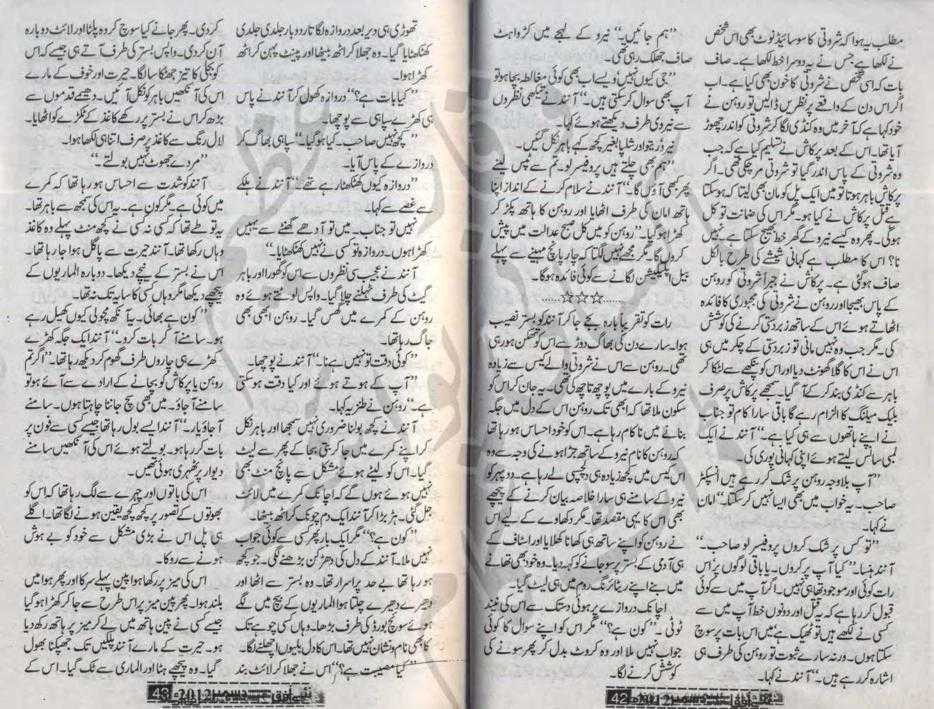 مطلب یہ ہوا کہ شروتی کا سوسائیڈ نوٹ بھی اس شخص
نے لکھا ہے جس نے یہ دوسرا خط لکھا ہے۔ صاف
بات کہ اسی شخص نے شروتی کا خون بھی کیا ہے۔ اب
اگر اس دن کے واقعے پر نظریں ڈالیں تو روہن نے
خود کہا ہے کہ آخر میں وہ کنڈی لگا کر شروتی کو اندر چھوڑ
آیا تھا۔ اس کے بعد پرکاش نے تسلیم کیا ہے کہ جب
وہ شروتی کے پاس اندر گیا تو شروتی مر چکی تھی۔ اگر
پرکاش باہر ہوتا تو میں ایک پل کو مان بھی لیتا کہ ہوسکتا
ہے قتل پرکاش نے کیا ہو۔ مگر اس کی ضمانت تو کل
ہوگی۔ پھر وہ کیسے نیرو کے گھر خط بھیج سکتا ہے نہیں
نا؟ اس کا مطلب ہے کہانی شیشے کی طرح بالکل
صاف ہوگئی ہے۔ پرکاش نے جبراً شروتی کو روہن
کے پاس بھیجا اور روہن نے شروتی کی مجبوری کا فائدہ
اٹھاتے ہوئے اس کے ساتھ زبردستی کرنے کی کوشش
کی۔ مگر جب وہ نہیں مانی تو زبردستی کے چکر میں ہی
اس نے اس کا گلا گھونٹ دیا اور اس کو پنکھے سے لٹکا کر
باہر سے کنڈی بند کرکے آگیا۔ سمجھے پرکاش پر صرف
بلیک میلنگ کا الزام رہے گا باقی سارا کام تو جناب
نے اپنے ہاتھوں سے ہی کیا ہے۔" آنند نے ایک
لمبی سانس لیتے ہوئے اپنی کہانی پوری کی۔
"آپ بلاوجہ روہن پر شک کررہے ہیں انسپکٹر
صاحب۔ یہ خواب میں بھی ایسا نہیں کرسکتا۔" امان
نے کہا۔
"تو کس پر شک کروں پروفیسر لو صاحب۔"
آنند ہنسا۔ "کیا آپ پر کروں۔ یا باقی لوگوں پر اس
رات کوئی اور موجود تھا ہی نہیں۔ اگر آپ میں سے کوئی
قبول کررہا ہے کہ یہ قتل اور دونوں خط آپ میں سے
کسی نے لکھے ہیں تو ٹھیک ہے میں اس بات پر سوچ
سکتا ہوں۔ ورنہ سارے ثبوت تو روہن کی طرف ہی
اشارہ کررہے ہیں۔" آنند نے کہا۔
"ہم جائیں۔" نیرو کے لہجے میں کڑواہٹ
صاف جھلک رہی تھی۔
"جی کیوں نہیں ویسے اب بھی کوئی مغالطہ بچا ہو تو
آپ بھی سوال کرسکتی ہیں۔" آنند نے تیکھی نظروں
سے نیرو کی طرف دیکھتے ہوئے کہا۔
نیرو، ریتو اور شلپا بغیر کچھ کہے باہر نکل گئیں۔
"ہم بھی چلتے ہیں پروفیسر لو۔ تم سے مس لینے
پھر کبھی آؤں گا۔" آنند نے سلام کرنے کے انداز اپنا
ہاتھ امان کی طرف اٹھایا اور روہن کا ہاتھ پکڑ کر
کھڑا ہوگیا۔ "روہن کو میں کل صبح عدالت میں پیش
کروں گا۔ مگر مجھے نہیں لگتا کہ چار پانچ مہینے سے پہلے
بیل اپلیکیشن لگانے سے کوئی فائدہ ہوگا۔
......☆☆☆......
رات کو تقریباً بارہ بجے جا کر آنند کو بستر نصیب
ہوا۔ سارے دن کی بھاگ دوڑ سے اس کو تھکن ہورہی
تھی۔ روہن سے اس نے شروتی والے کیس سے زیادہ
نیرو کے بارے میں پوچھ تاچھ کی تھی۔ یہ جان کر اس کو
سکون ملا تھا کہ ابھی تک روہن اس کے دل میں جگہ
بنانے میں ناکام رہا ہے۔ اس کو خود احساس ہورہا تھا
کہ روہن کا نام نیرو کے ساتھ جڑا ہونے کی وجہ سے وہ
اس کیس میں کچھ زیادہ ہی دلچسپی لے رہا ہے۔ دوپہر کو
نیرو کے سامنے ہی سارا خلاصہ بیان کرنے کے پیچھے
بھی اس کا یہی مقصد تھا۔ مگر دکھاوے کے لیے اس
نے روہن کو اپنے ساتھ ہی کھانا کھلایا اور اسٹاف کے
ہی آدمی کے بستر پر سو جانے کو کہہ دیا۔ وہ خود بھی تھانے
میں بنے اپنے ریٹائرنگ روم میں ہی لیٹ گیا۔
اچانک دروازے پر ہوئی دستک سے اس کی نیند
ٹوٹی۔ "کون ہے؟" مگر اس کو اپنے سوال کا کوئی
جواب نہیں ملا اور وہ کروٹ بدل کر پھر سونے کی
کوشش کرنے لگا۔
42 دسمبر 2012ء
تھوڑی ہی دیر بعد دروازہ لگاتار دو بار جلدی جلدی
کھٹکھٹایا گیا۔ وہ جھلا کر اٹھ بیٹھا اور پینٹ پہن کر اٹھ
کھڑا ہوا۔
"کیا بات ہے؟" دروازہ کھول کر آنند نے پاس
ہی کھڑے سپاہی سے پوچھا۔
"کچھ نہیں صاحب۔ کیا ہوگیا۔" سپاہی بھاگ کر
دروازے کے پاس آیا۔
"دروازہ کیوں کھٹکھٹا رہے تھے۔" آنند نے ہلکے
سے غصے سے کہا۔
نہیں تو جناب۔ میں تو آدھے گھنٹے سے یہیں
کھڑا ہوں۔ دروازہ تو کسی نے نہیں کھٹکھٹایا۔"
آنند نے عجیب سی نظروں سے اس کو گھورا اور باہر
گیٹ کی طرف ٹہلنے چلا گیا۔ واپس لوٹتے ہوئے وہ
روہن کے کمرے میں گھس گیا۔ روہن ابھی بھی
جاگ رہا تھا۔
"کوئی دقت تو نہیں ہے نا۔" آنند نے پوچھا۔
"آپ کے ہوتے ہوئے اور کیا دقت ہوسکتی
ہے۔" روہن نے طنزیہ کہا۔
آنند نے کچھ بولنا ضروری نہیں سمجھا اور باہر نکل
کر اپنے کمرے میں جا کر بتی بجھا کے پھر سے لیٹ
گیا۔ اس کو لیٹے ہوئے مشکل سے پانچ منٹ بھی
نہیں ہوئے ہوں گے کہ اچانک کمرے میں لائٹ
جل گئی۔ ہڑبڑا کر آنند ایک دم چونک کر اٹھ بیٹھا۔
"کون ہے؟" مگر ایک بار پھر کسی سے کوئی جواب
نہیں ملا۔ آنند کے دل کی دھڑکن بڑھنے لگی۔ جو کچھ
ہورہا تھا بے حد پراسرار تھا۔ وہ بستر سے اٹھا اور
دھیرے دھیرے چلتا ہوا الماریوں کے بیچ میں لگے
ہوئے سوئچ بورڈ کی طرف بڑھا۔ وہاں کسی چوہے تک
کا بھی نام و نشان نہیں تھا۔ اس کا دل بلیوں اچھلنے لگا۔
"کیا مصیبت ہے؟" اس نے جھلا کر لائٹ بند
کردی۔ پھر جانے کیا سوچ کر وہ پلٹا اور لائٹ دوبارہ
آن کردی۔ واپس بستر کی طرف آتے ہی جیسے کہ اس
کو بجلی کا تیز جھٹکا سا لگا۔ حیرت اور خوف کے مارے
اس کی آنکھیں باہر کو نکل آئیں۔ دھیمے قدموں سے
بڑھ کر اس نے بستر پر رکھے کاغذ کے ٹکڑے کو اٹھایا۔
لال رنگ سے کاغذ پر صرف اتنا ہی لکھا ہوا۔
"مردے جھوٹ نہیں بولتے۔"
آنند کو شدت سے احساس ہورہا تھا کہ کمرے
میں کوئی ہے۔ مگر کون ہے۔ یہ اس کی سمجھ سے باہر تھا۔
یہ تو طے تھا کہ کسی نہ کسی نے کچھ منٹ پہلے وہ کاغذ
وہاں رکھا تھا۔ آنند حیرت سے پاگل ہوا جارہا تھا۔
اس نے بستر کے نیچے دیکھا۔ دوبارہ الماریوں کے
پیچھے دیکھا مگر وہاں کسی کا سایہ تک نہ تھا۔
"کون ہے بھائی۔ یہ آنکھ مچولی کیوں کھیل رہے
ہو۔ سامنے آ کر بات کرو۔" آنند ایک جگہ کھڑے
کھڑے ہی چاروں طرف گھوم کر دیکھ رہا تھا۔ "اگر تم
روہن یا پرکاش کو بچانے کے ارادے سے آئے ہو تو
سامنے آجاؤ۔ میں بھی سچ جاننا چاہتا ہوں۔ سامنے
آجاؤ یار۔" آنند ایسے بول رہا تھا جیسے کسی سے فون پر
بات کررہا ہو۔ بولتے ہوئے اس کی آنکھیں سامنے
دیوار پر ٹھہری ہوئی تھیں۔
اس کی باتوں اور چہرے سے لگ رہا تھا کہ اس کو
بھوتوں کے تصور پر کچھ کچھ یقین ہونے لگا تھا۔ اگلے
ہی پل اس نے بڑی مشکل سے خود کو بے ہوش
ہونے سے روکا۔
اس کی میز پر رکھا ہوا پین پہلے سرکا اور پھر ہوا میں
بلند ہوا۔ پھر پین میز پر اس طرح سے جا کر کھڑا ہوگیا
جیسے کسی نے پین ہاتھ میں لے کر میز پر ہاتھ رکھ دیا
ہو۔ حیرت کے مارے آنند پلکیں تک جھپکنا بھول
گیا۔ وہ پیچھے ہٹا اور الماری سے ٹک گیا۔ اس کے
43 دسمبر 2012ء